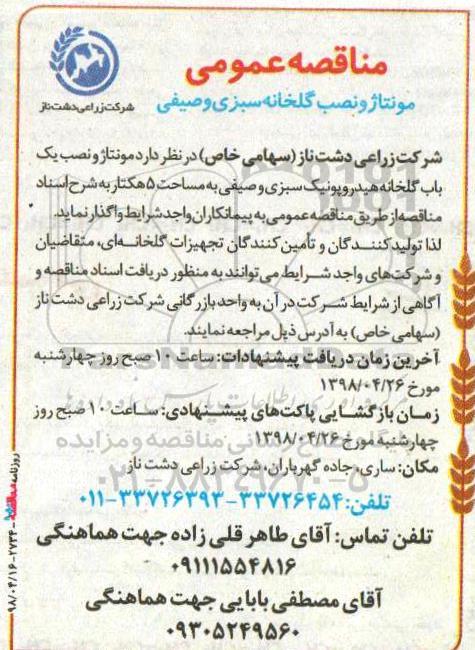 مناقصه عمومی
مونتاژ و نصب گلخانه سبزی وصیفی
شرکت زراعی دشت ناز
شرکت زراعی دشت ناز (سهامی خاص) در نظر دارد مونتاژ و نصب یک
باب گلخانه هیدروپونیک سبزی وصیفی به مساحت ۵ هکتار به شرح اسناد
مناقصه از طریق مناقصه عمومی به پیمانکاران واجد شرایط واگذار نماید.
لذا تولید کنندگان و تأمین کنندگان تجهیزات گلخانه‌ای، متقاضیان
و شرکت‌های واجد شرایط می‌توانند به منظور دریافت اسناد مناقصه و
آگاهی از شرایط شرکت در آن به واحد بازرگانی شرکت زراعی دشت ناز
(سهامی خاص) به آدرس ذیل مراجعه نمایند.
آخرین زمان دریافت پیشنهادات: ساعت ۱۰ صبح روز چهارشنبه
مورخ ۱۳۹۸/۰۴/۲۶
زمان بازگشایی پاکت‌های پیشنهادی: ساعت ۱۰ صبح روز
چهارشنبه مورخ ۱۳۹۸/۰۴/۲۶
مکان: ساری، جاده گهرباران، شرکت زراعی دشت ناز
تلفن: ۳۳۷۲۶۴۵۴-۳۳۷۲۶۳۹۳-۰۱۱
تلفن تماس: آقای طاهر قلی زاده جهت هماهنگی
۰۹۱۱۱۵۵۴۸۱۶
آقای مصطفی بابایی جهت هماهنگی
۰۹۳۰۵۲۴۹۵۶۰
روزنامه مناقصه - ۲۷۳۴ - ۹۸/۰۴/۱۶
۰۲۱-۸۸۳۴۹۶۷۰-۵